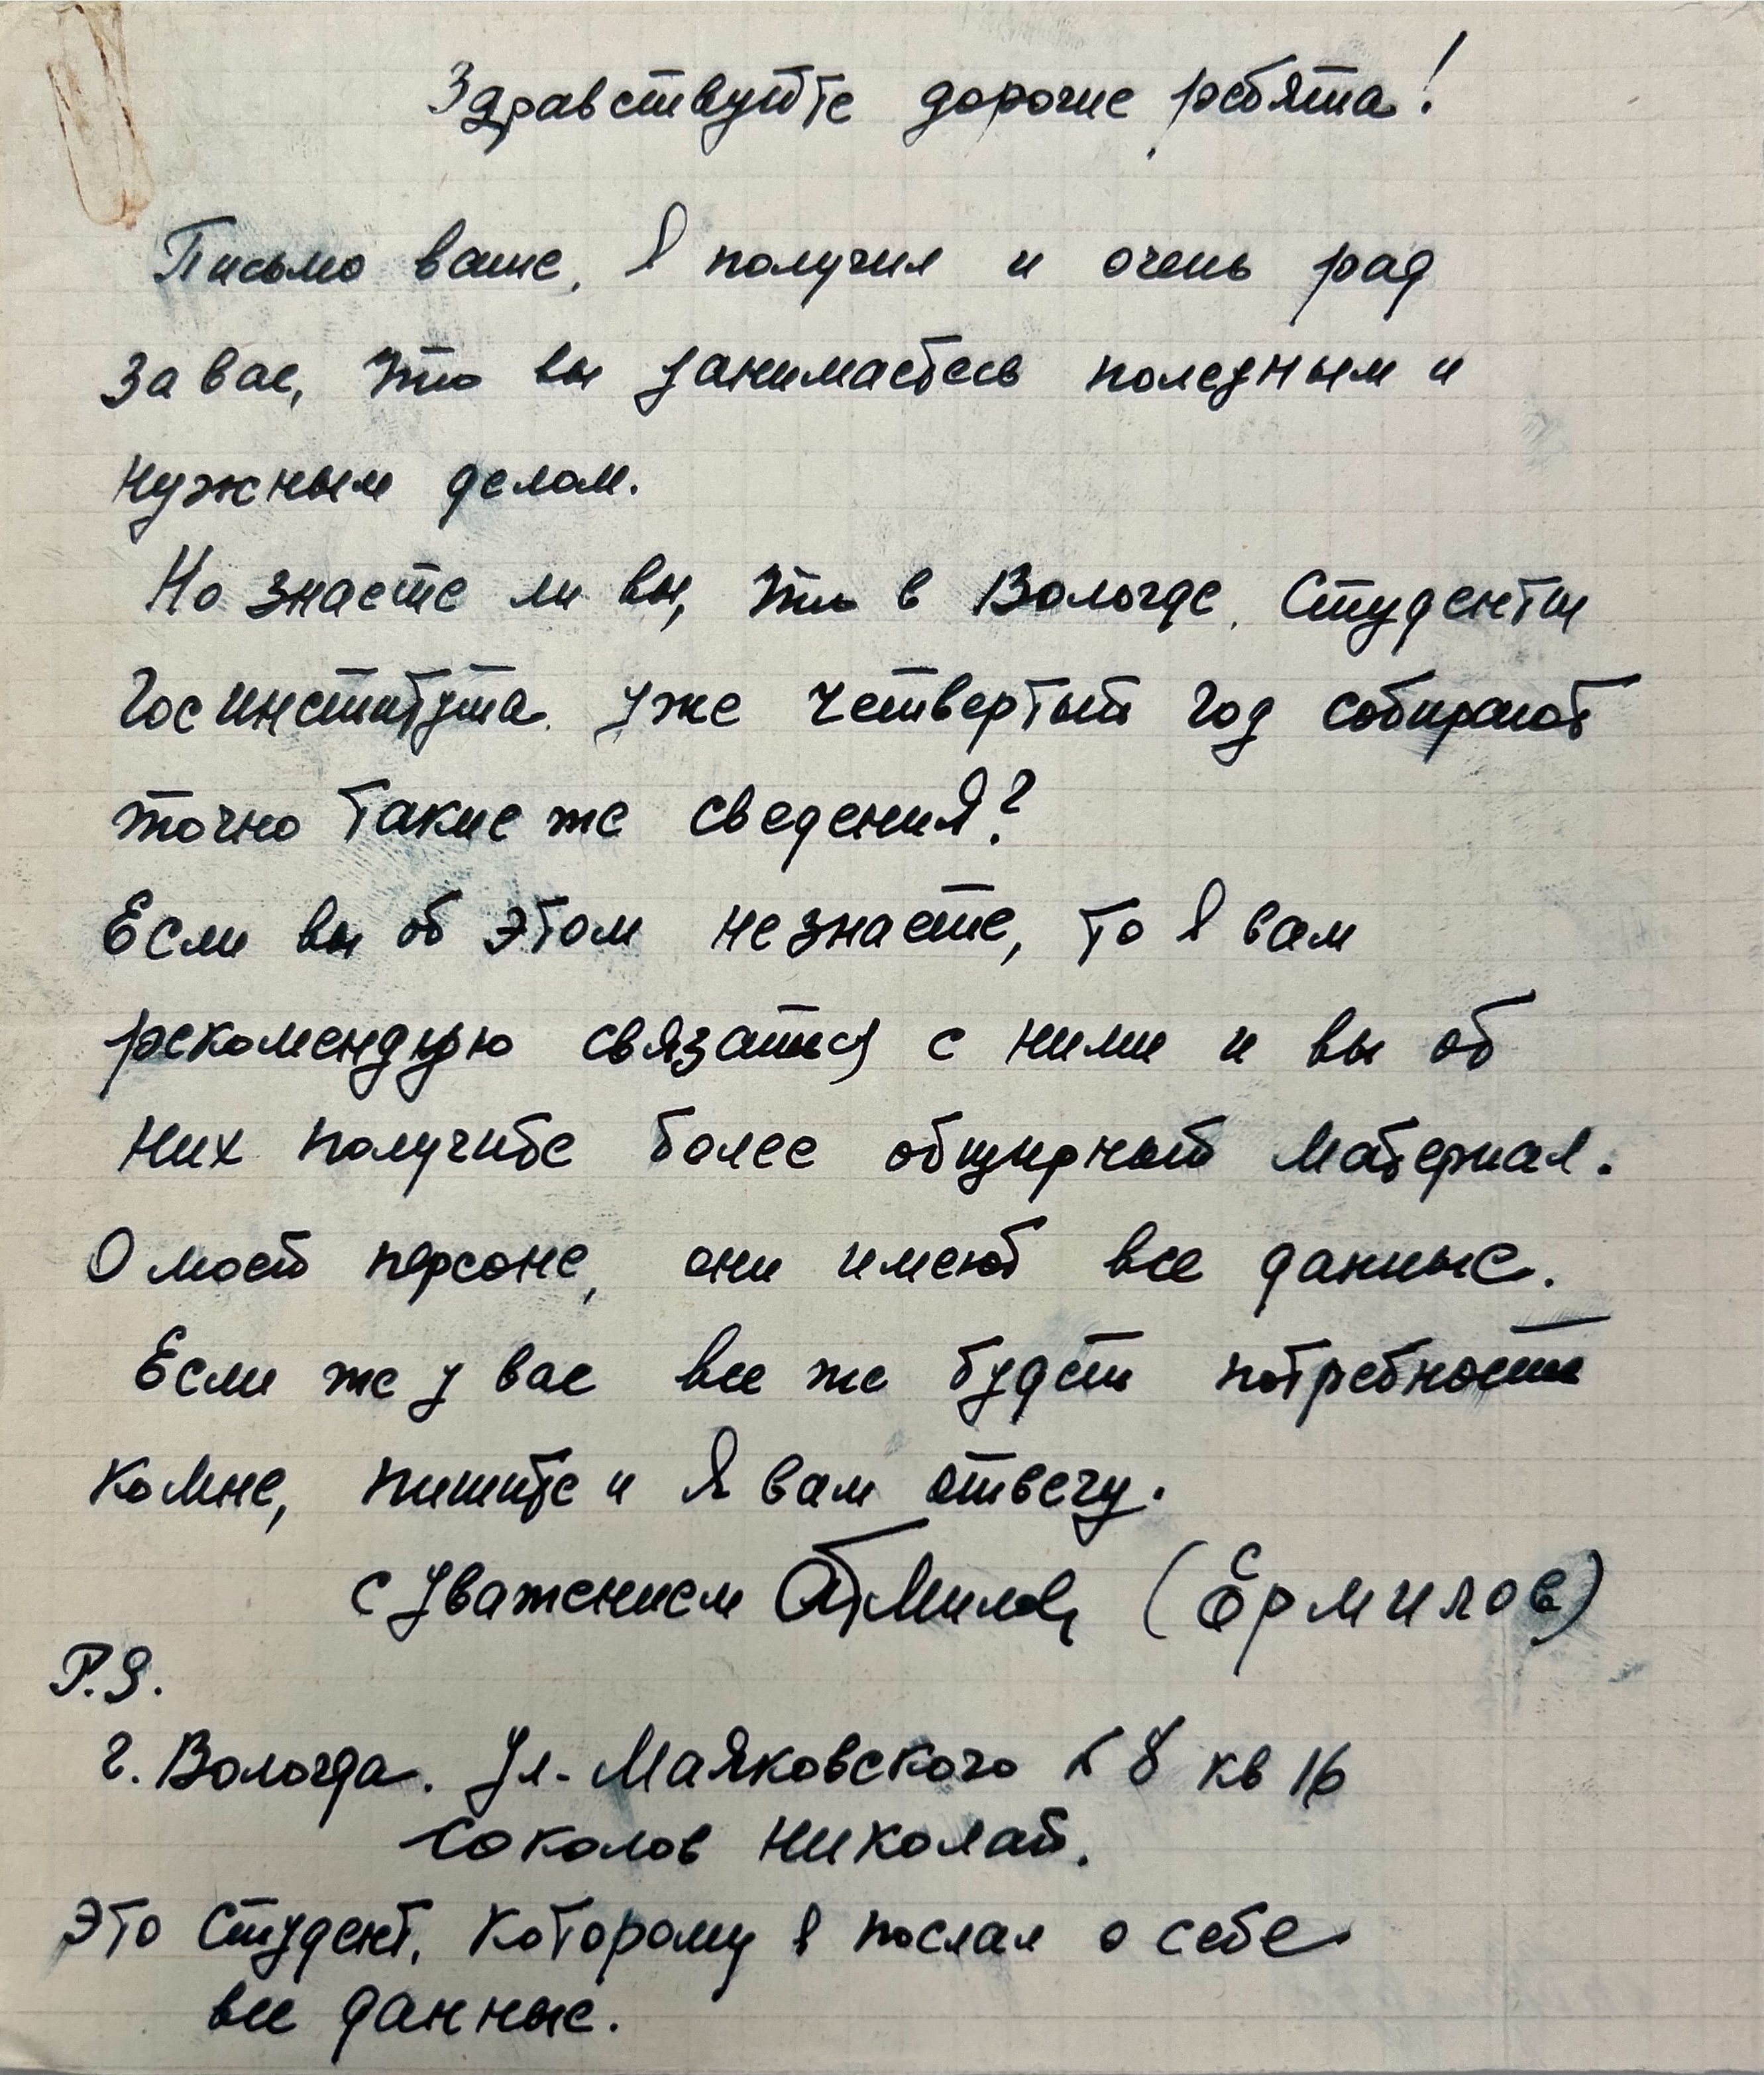 Здравствуйте дорогие ребята!
Письмо ваше, я получил и очень рад
за вас, что вы занимаетесь полезным и
нужным делом.
Но знаете ли вы, что в Вологде, студенты
Госинститута уже четвертый год собирают
точно такие же сведения?
Если вы об этом не знаете, то я вам
рекомендую связаться с ними и вы об
них получите более обширный материал.
О моей персоне, они имеют все данные.
Если же у вас все же будет потребность
ко мне, пишите и я вам отвечу.
с уважением (Ермилов)
P.S.
г. Вологда. Ул. Маяковского 8 кв 16
Соколов Николай.
Это студент, которому я послал о себе
все данные.